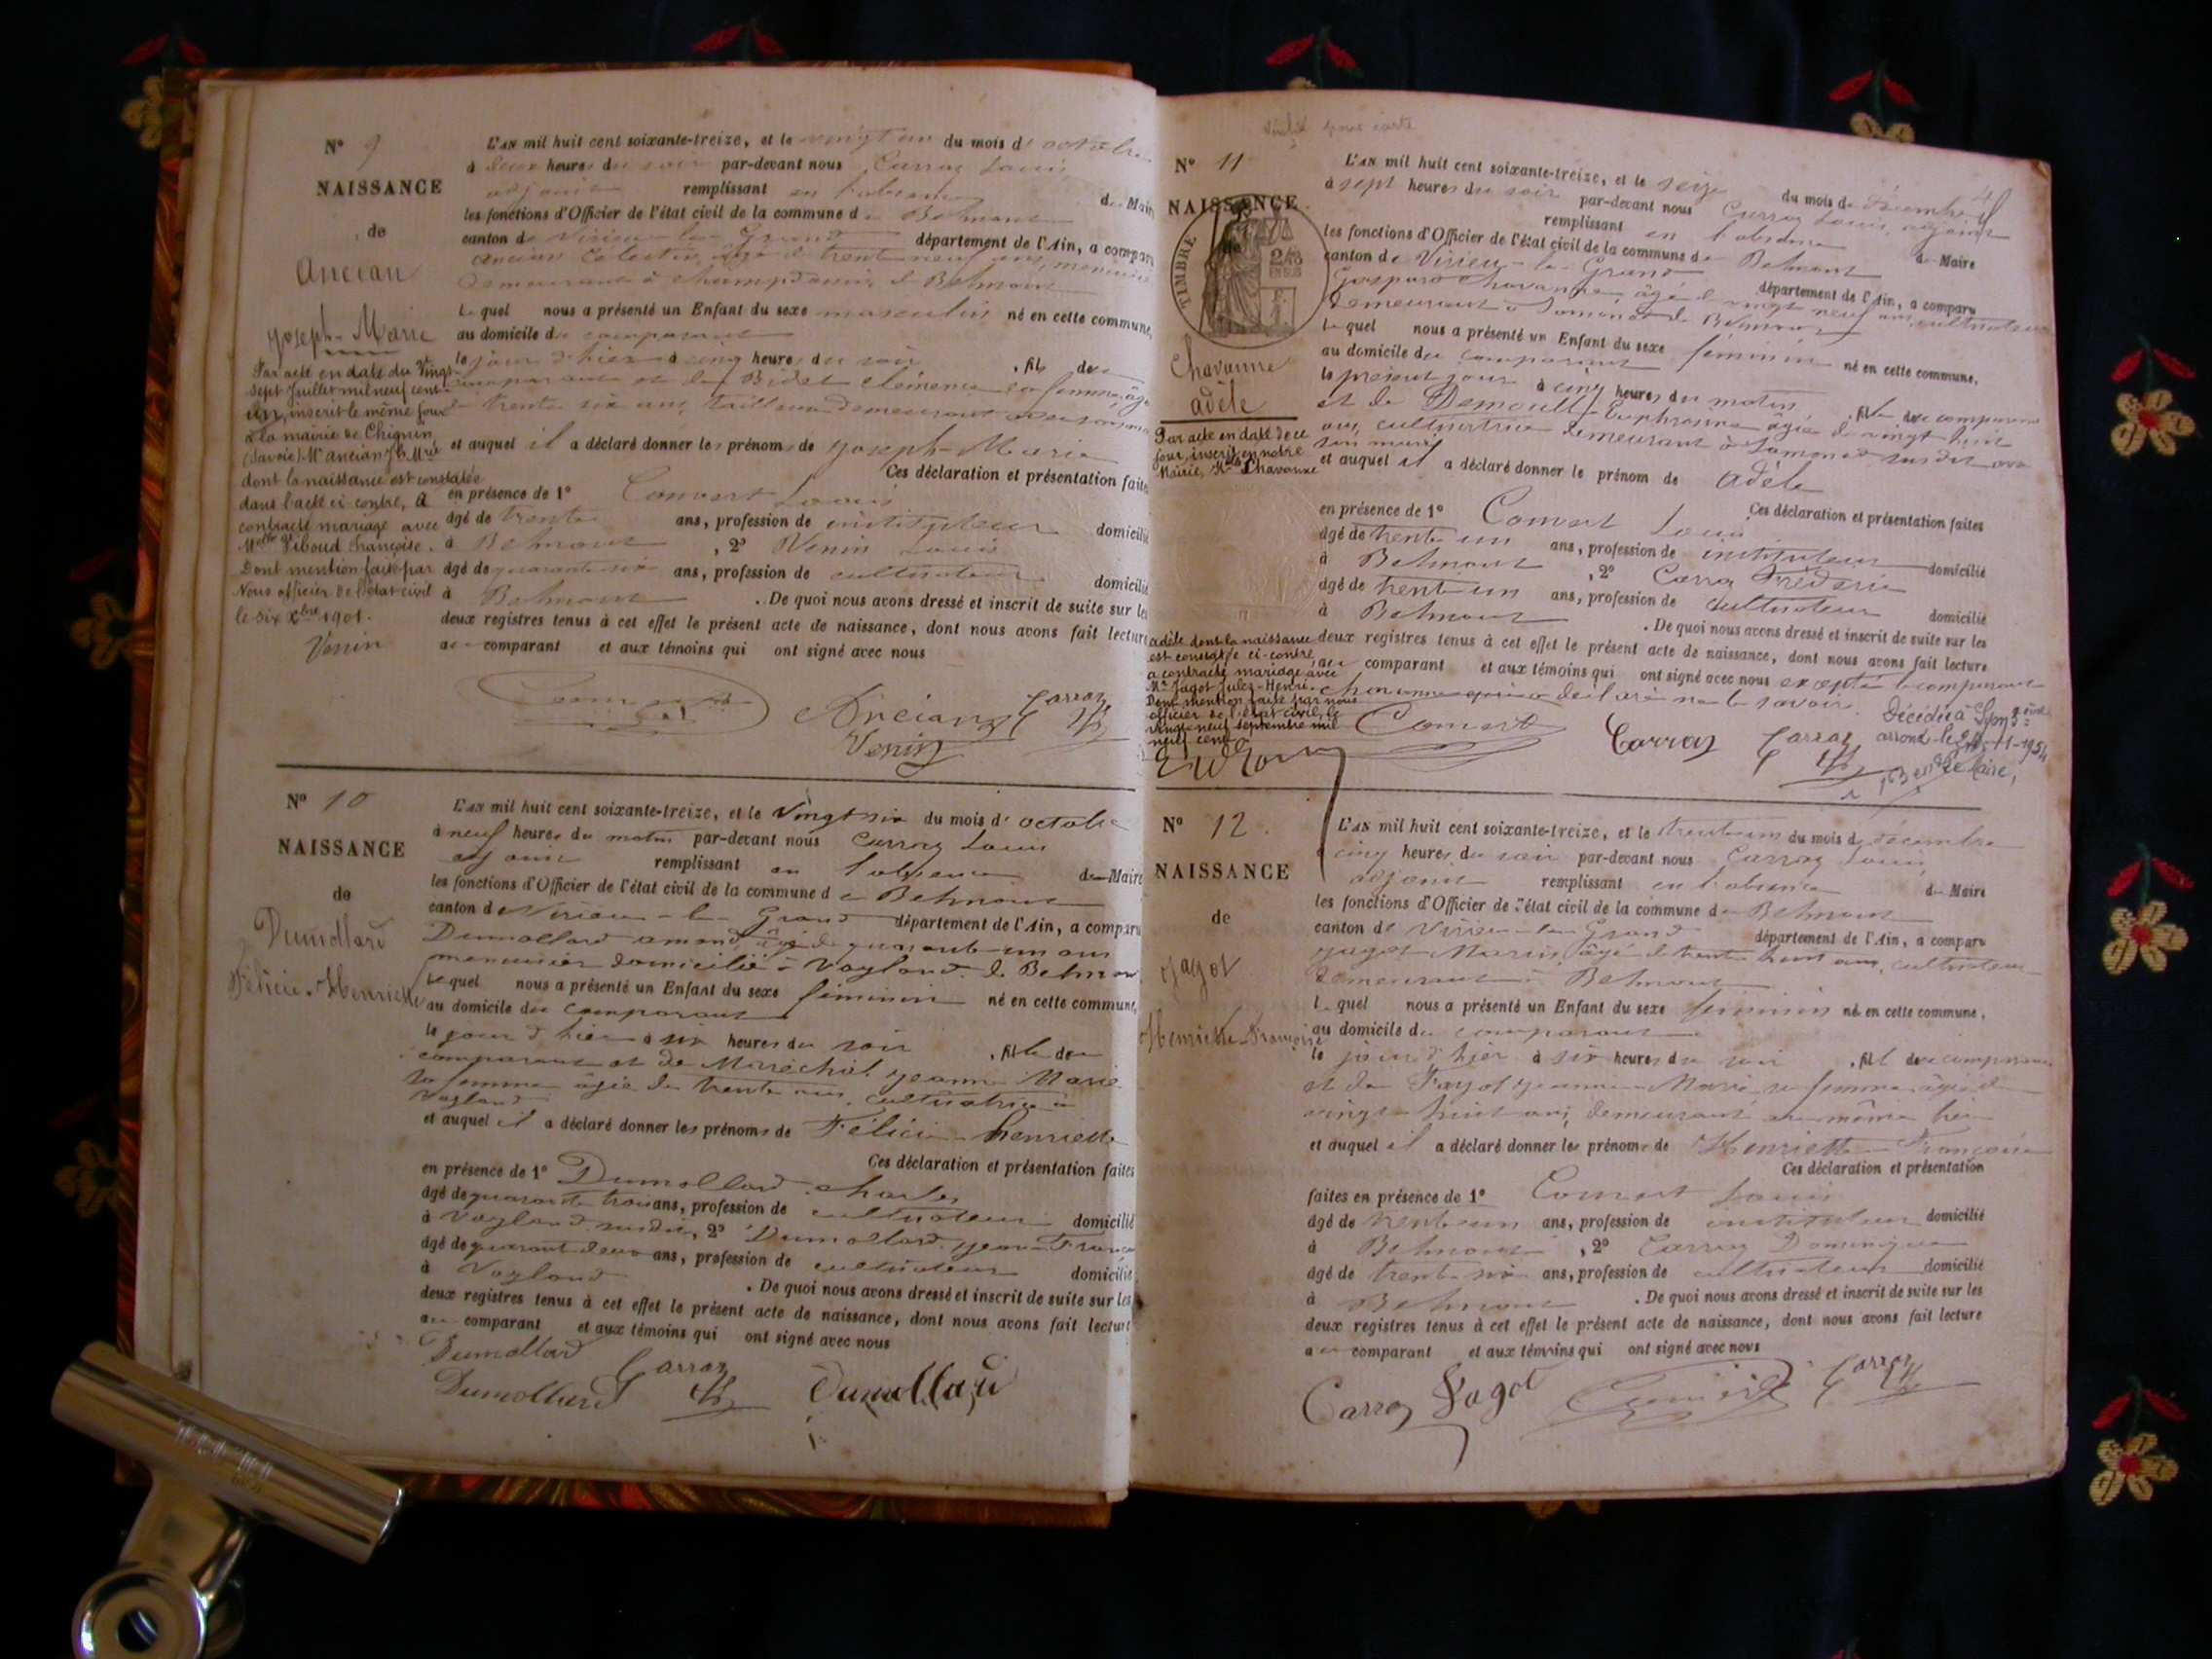 N° 9
NAISSANCE
de
Ancian
Joseph-Marie
Par acte en date du Vingt-
sept Juillet mil neuf cent
un, inscrit le même jour
à la mairie de Chignin
(Savoie) Mr Ancian Jh Mrie
dont la naissance est constatée
dans l'acte ci-contre, a
contracté mariage avec
Melle Françoise.
Dont mention faite par
Nous officier de l'état civil
le six Xbre 1901.
Venin
L'AN mil huit cent soixante-treize, et le vingt un du mois d'octobre
à deux heures du soir par-devant nous Carraz Louis
adjoint remplissant en l'absence du Maire
les fonctions d'Officier de l'état civil de la commune de Belmont
canton de Virieu-le-Grand département de l'Ain, a comparu
Ancian Célestin, âgé de trente neuf ans, menuisier
demeurant à de Belmont
Lequel nous a présenté un Enfant du sexe masculin né en cette commune,
au domicile du comparant
le jour d'hier à cinq heures du soir, fils de
comparant et de Bidet Clémence sa femme, âgée
de trente six ans, tailleuse demeurant avec son mari
et auquel il a déclaré donner les prénoms de Joseph-Marie
Ces déclaration et présentation faites
en présence de 1° Convert Louis
âgé de trente ans, profession de instituteur domicilié
à Belmont, 2° Venin Louis
âgé de quarante six ans, profession de cultivateur domicilié
à Belmont. De quoi nous avons dressé et inscrit de suite sur les
deux registres tenus à cet effet le présent acte de naissance, dont nous avons fait lecture
au comparant et aux témoins qui ont signé avec nous
Convert Ancian Carraz
Venin
N° 10
NAISSANCE
de
Dumollard
Félicie-Henriette
L'AN mil huit cent soixante-treize, et le vingt six du mois d'octobre
à neuf heures du matin par-devant nous Carraz Louis
adjoint remplissant en l'absence du Maire
les fonctions d'Officier de l'état civil de la commune de Belmont
canton de Virieu-le-Grand département de l'Ain, a comparu
Dumollard amand, âgé de quarante-un ans
menuisier domicilié à Vogland de Belmont
Lequel nous a présenté un Enfant du sexe féminin né en cette commune,
au domicile du comparant
le jour d'hier à six heures du soir, fille de
comparant et de Maréchal Jeanne Marie
sa femme âgée de trente ans, cultivatrice à
Vogland
et auquel il a déclaré donner les prénoms de Félicie-henriette
Ces déclaration et présentation faites
en présence de 1° Dumollard Charles
âgé de quarante trois ans, profession de cultivateur domicilié
à Vogland susdit, 2° Dumollard Jean-François
âgé de quarante deux ans, profession de cultivateur domicilié
à Vogland. De quoi nous avons dressé et inscrit de suite sur les
deux registres tenus à cet effet le présent acte de naissance, dont nous avons fait lecture
au comparant et aux témoins qui ont signé avec nous
Dumollard Carraz
Dumollard Dumollard
pour carte
N° 11
NAISSANCE
TIMBRE
Chavanne
adèle
Par acte en date de ce
jour, inscrit en notre
Mairie, Chavanne
adèle dont la naissance
est constatée ci-contre
a contracté mariage avec
Mr Jagot Jules-Henri.
Dont mention faite par nous
officier de l'état civil, le
vingt neuf septembre mil
neuf cent
L'AN mil huit cent soixante-treize, et le seize du mois de décembre
à sept heures du soir par-devant nous Carraz Louis, adjoint
remplissant en l'absence du Maire
les fonctions d'Officier de l'état civil de la commune de Belmont
canton de Virieu-le-Grand département de l'Ain, a comparu
Gaspard Chavanne, âgé de vingt neuf ans, cultivateur
demeurant à de Belmont
Lequel nous a présenté un Enfant du sexe féminin né en cette commune,
au domicile du comparant
le présent jour à cinq heures du matin, fille du comparant
et de Euphrosine âgée de vingt huit
ans, cultivatrice demeurant à susdit avec
son mari
et auquel il a déclaré donner le prénom de adèle
Ces déclaration et présentation faites
en présence de 1° Convert Louis
âgé de trente un ans, profession de instituteur domicilié
à Belmont, 2° Carraz Frédéric
âgé de trente un ans, profession de cultivateur domicilié
à Belmont. De quoi nous avons dressé et inscrit de suite sur les
deux registres tenus à cet effet le présent acte de naissance, dont nous avons fait lecture
au comparant et aux témoins qui ont signé avec nous excepté le comparant
déclaré ne le savoir.
Convert Carraz Carraz
Décédée à Lyon 3ème
arrond. le 1954
Le Maire,
N° 12
NAISSANCE
de
Jagot
Henriette-Françoise
L'AN mil huit cent soixante-treize, et le trente un du mois de décembre
à cinq heures du soir par-devant nous Carraz Louis
adjoint remplissant en l'absence du Maire
les fonctions d'Officier de l'état civil de la commune de Belmont
canton de Virieu-le-Grand département de l'Ain, a comparu
Jagot Marin, âgé de trente huit ans, cultivateur
demeurant à Belmont
Lequel nous a présenté un Enfant du sexe féminin né en cette commune,
au domicile du comparant
le jour d'hier à six heures du soir, fille du comparant
et de Jeanne Marie sa femme âgée de
vingt-huit ans, demeurant au même lieu
et auquel il a déclaré donner les prénoms de Henriette-Françoise
Ces déclaration et présentation
faites en présence de 1° Convert Louis
âgé de trente un ans, profession de instituteur domicilié
à Belmont, 2° Carraz Dominique
âgé de trente six ans, profession de cultivateur domicilié
à Belmont. De quoi nous avons dressé et inscrit de suite sur les
deux registres tenus à cet effet le présent acte de naissance, dont nous avons fait lecture
au comparant et aux témoins qui ont signé avec nous
Carraz Jagot Convert Carraz